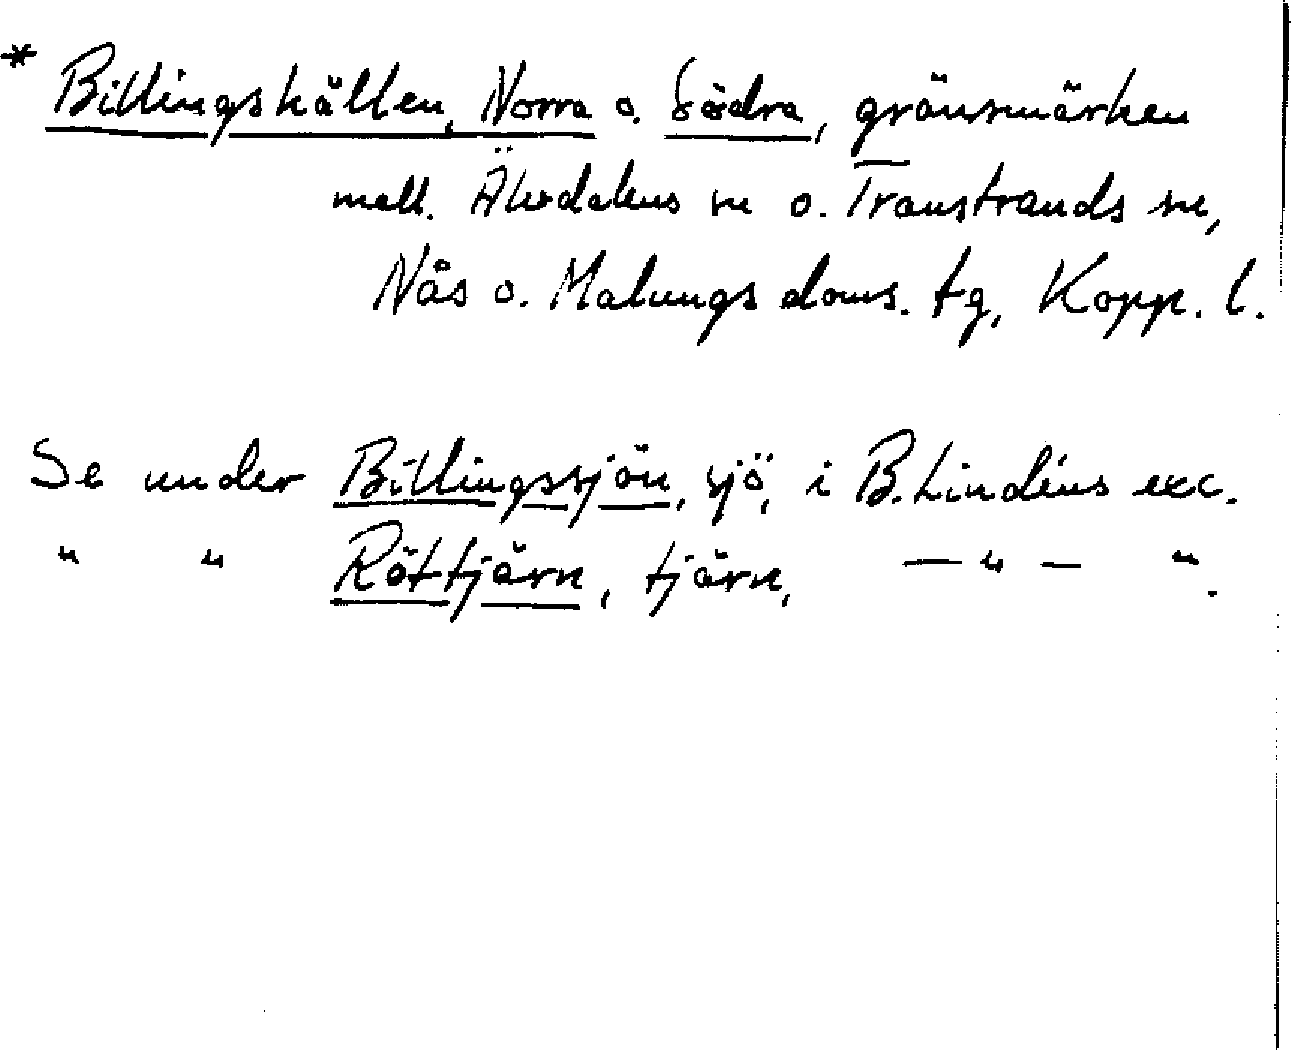 * Billingshällen, Norra o. Södra, gränsmärken
mell. Älvdalens sn o. Transtrands sn,
Nås o. Malungs doms. tg, Kopp. l.
Se under Billingssjön, sjö, i B. Lindéns exc.
" " Röttjärn, tjärn, — " — ".